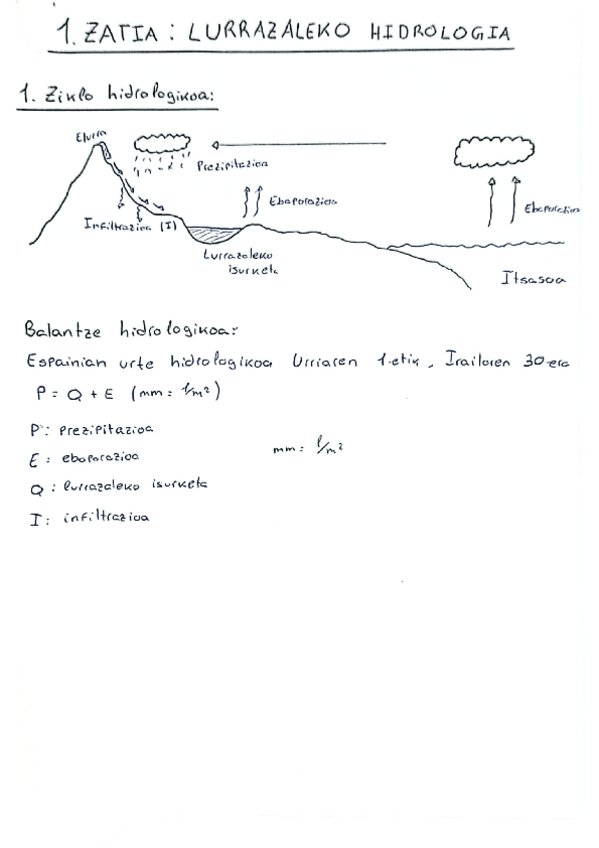 1. ZATIA : LURRAZALEKO HIDROLOGIA
1. Ziklo hidrologikoa:
Elurra
Prezipitazioa
Eboporazioa
Eboporazioa
Infiltrazioa (I)
Lurrazaleko
isurketa
Itsasoa
Balantze hidrologikoa:
Espainian urte hidrologikoa Urriaren 1-etik, Irailaren 30-era
P = Q + E (mm = l/m²)
P : prezipitazioa
mm = l/m²
E : eboporazioa
Q : lurrazaleko isurketa
I : infiltrazioa